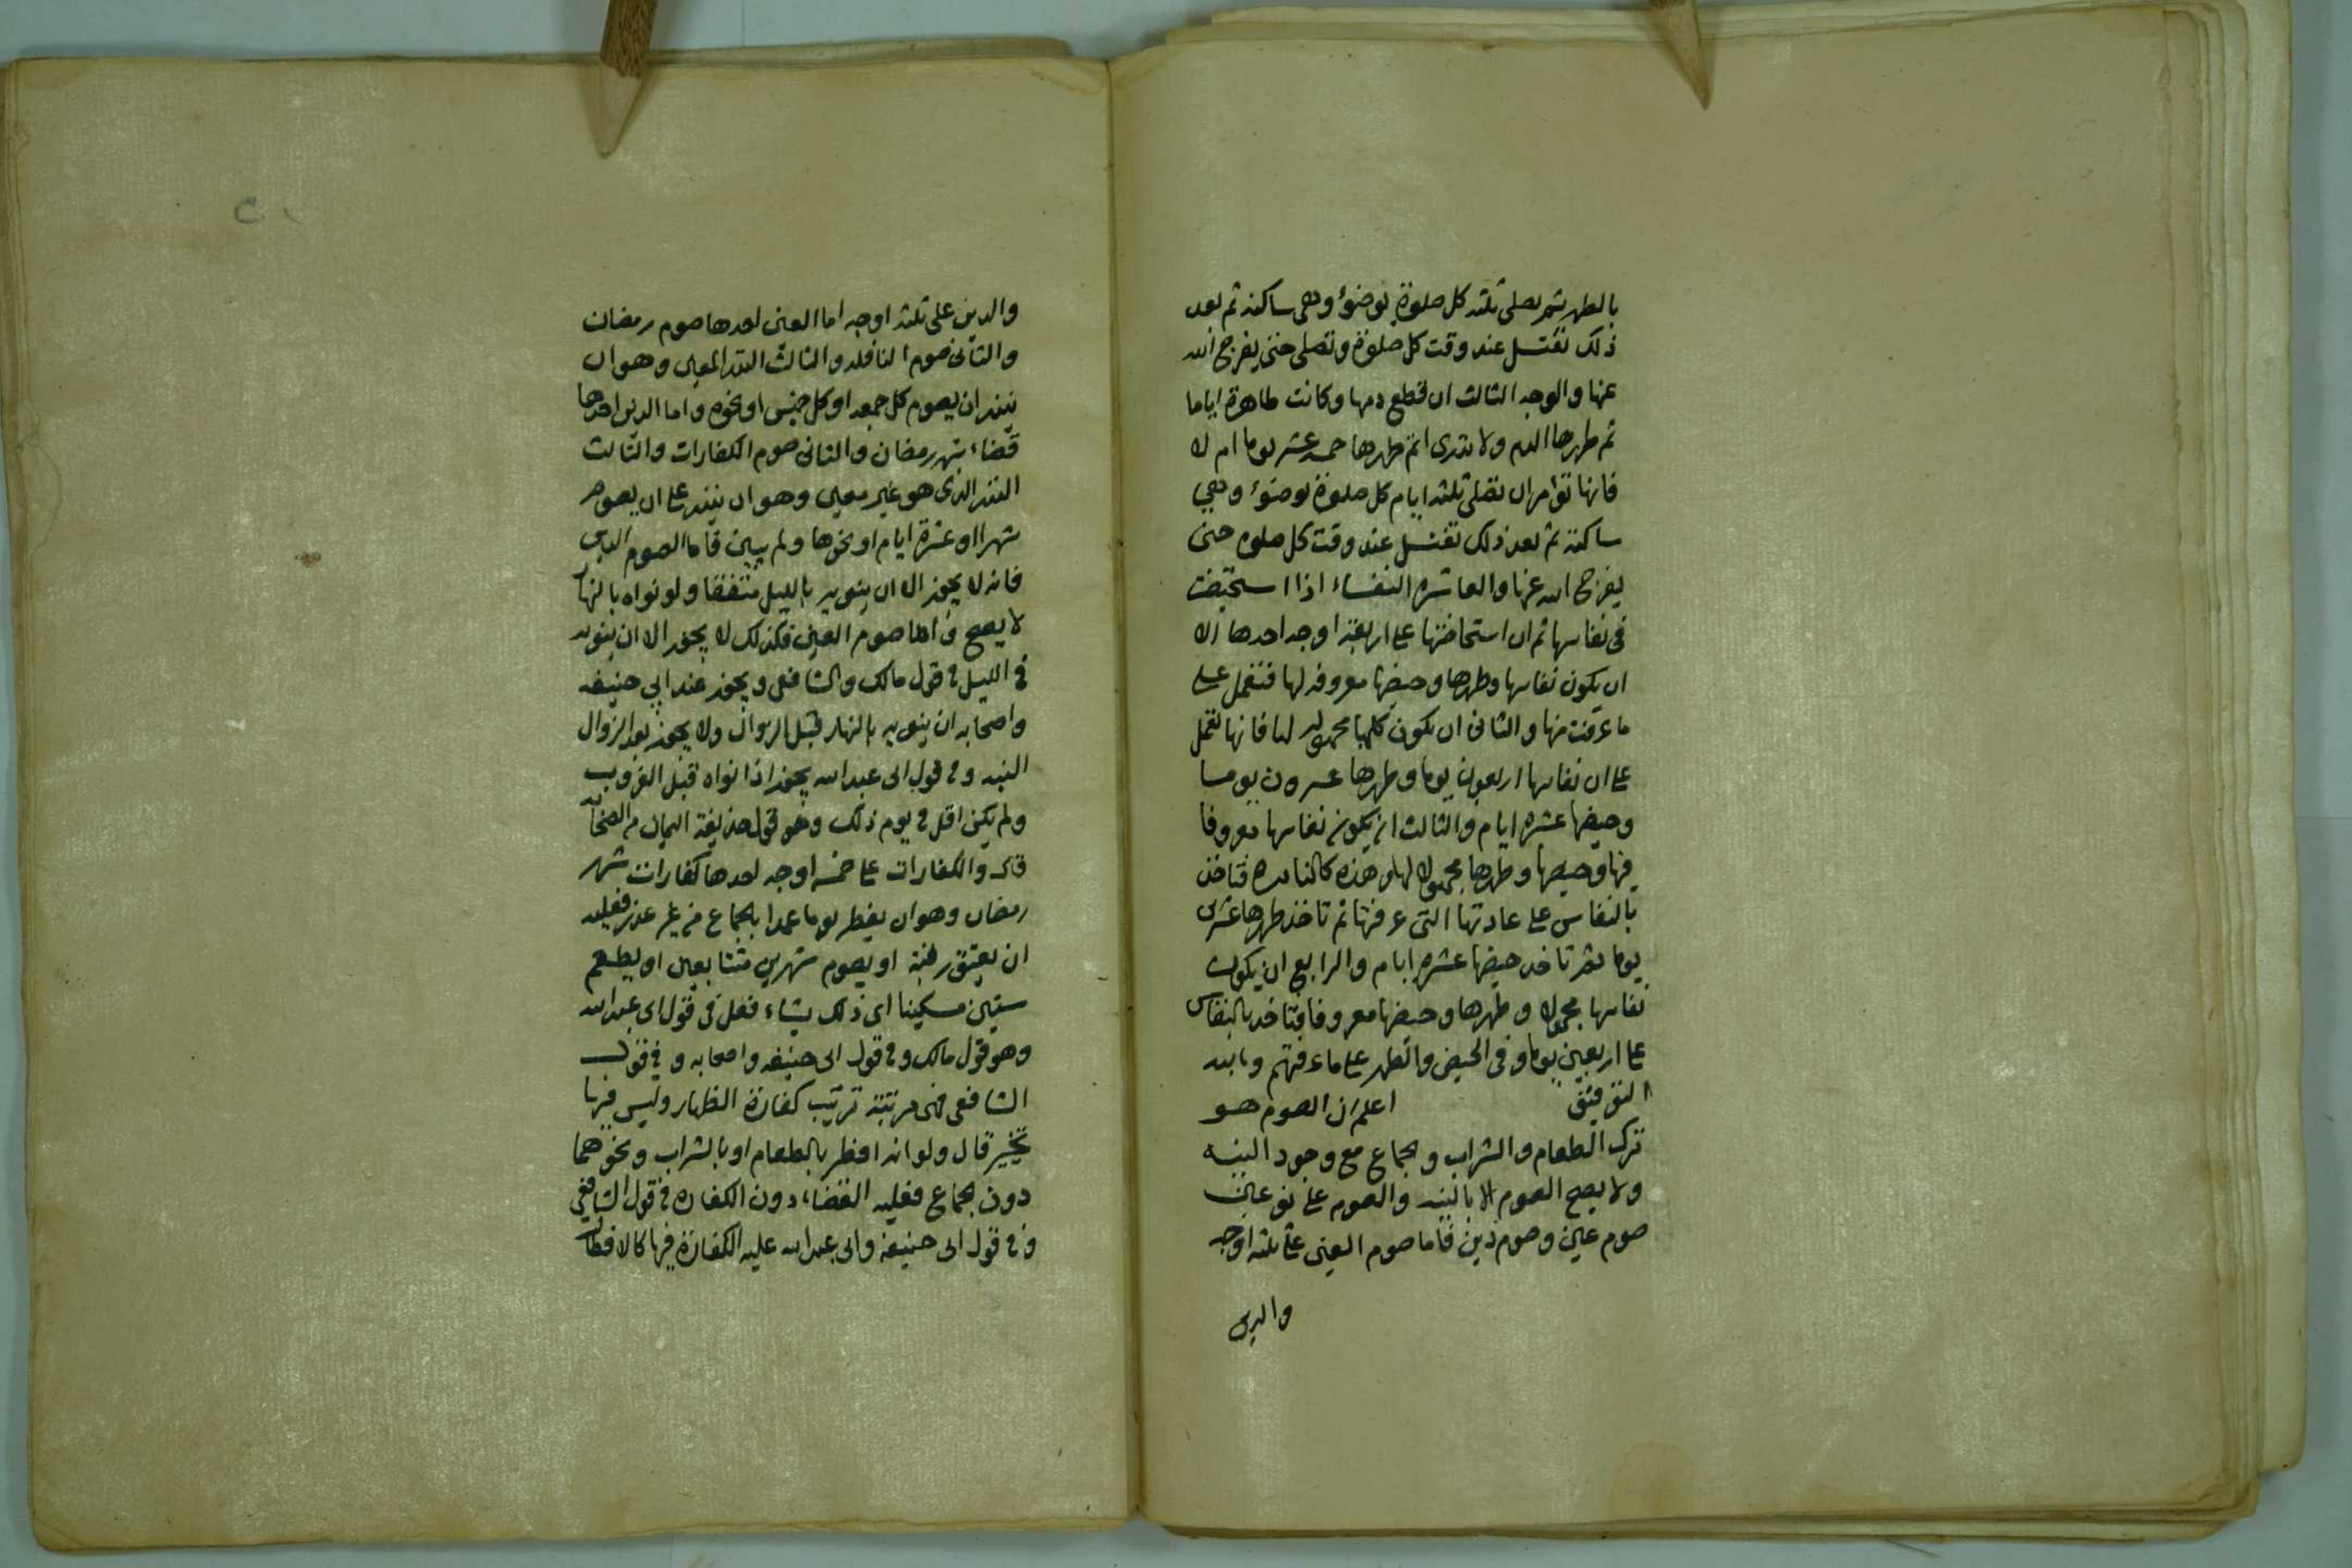 بالطهر ثم يصلى ثلثه كل صلوة بوضوء وهى ساكنه ثم بعد
ذلك تغتسل عند وقت كل صلوة وتصلى حتى يفرج الله
عنها والوجه الثالث ان قطع دمها وكانت طاهرة اياما
ثم طهرها الدم ولا تدرى اتم طهرها خمسه عشر يوما ام لا
فانها تؤامر ان تصلى ثلثه ايام كل صلوة بوضوء وهي
ساكنة ثم بعد ذلك تغتسل عند وقت كل صلوه حتى
يفرج الله عنها والعاشره النفساء اذا استحيضت
فى نفاسها ثم ان استحاضتها على اربعة اوجه احدها الا
ان يكون نفاسها وطهرها وحيضها معروفه لها فتعمل على
ما عرفت منها والثانى ان يكون كلها مجهوله لها فانها تعمل
على ان نفاسها اربعون يوما وطهرها عشرون يوما
وحيضها عشره ايام والثالث ان يكون نفاسها معروفا
فيها وحيضها وطهرها مجهولا لها وهذه كالنادره فتاخذ
بالنفاس على عادتها التى عرفتها ثم تاخذ طهرها عشرين
يوما ثم تاخذ حيضها عشره ايام والرابع ان يكون
نفاسها مجهولا وطهرها وحيضها معروفا فتاخذ بالنفاس
على اربعين يوما وفى الحيض والطهر على ما عرفتهم وبالله
التوفيق اعلم ان الصوم هو
ترك الطعام والشراب والجماع مع وجود النيه
ولا يصح الصوم الا بالنيه والصوم على نوعين
صوم عين وصوم دين فاما صوم العين على ثلثه اوجه
والدين
والدين على ثلثه اوجه اما العين احدها صوم رمضان
والثانى صوم النافله والثالث النذر المعين وهو ان
ينذر ان يصوم كل جمعه او كل خميس او نحوه واما الدين احدها
قضاء شهر رمضان والثانى صوم الكفارات والثالث
النذر الذى هو غير معين وهو ان ينذر على ان يصوم
شهرا او عشرة ايام او نحوها ولم يبين فاما الصوم الدين
فانه لا يجوز الا ان ينويه بالليل متفقا ولو نواه بالنهار
لا يصح واما صوم العين فكذلك لا يجوز الا ان ينويه
فى الليل فى قول مالك والشافعى ويجوز عند ابي حنيفه
واصحابه ان ينويه بالنهار قبل الزوال ولا يجوز بعد الزوال
النيه وفى قول ابى عبد الله يجوز اذا نواه قبل الغروب
ولم يكن اكل فى يوم ذلك وهو قول حذيفة اليمان من الصحابه
قال والكفارات على خمسه اوجه احدها كفارات شهر
رمضان وهو ان يفطر يوما عمدا بالجماع من غير عذر فعليه
ان يعتق رقبة او يصوم شهرين متتابعين او يطعم
ستين مسكينا اى ذلك يشاء فعل فى قول ابى عبد الله
وهو قول مالك وفى قول ابى حنيفه واصحابه وفى قول
الشافعى فهى مرتبة ترتيب كفارة الظهار وليس فيها
تخيير قال ولو انه افطر بالطعام او بالشراب ونحوهما
دون الجماع فعليه القضاء دون الكفاره فى قول الشافعي
وفى قول ابى حنيفة وابى عبد الله عليه الكفارة فيها كالافطار